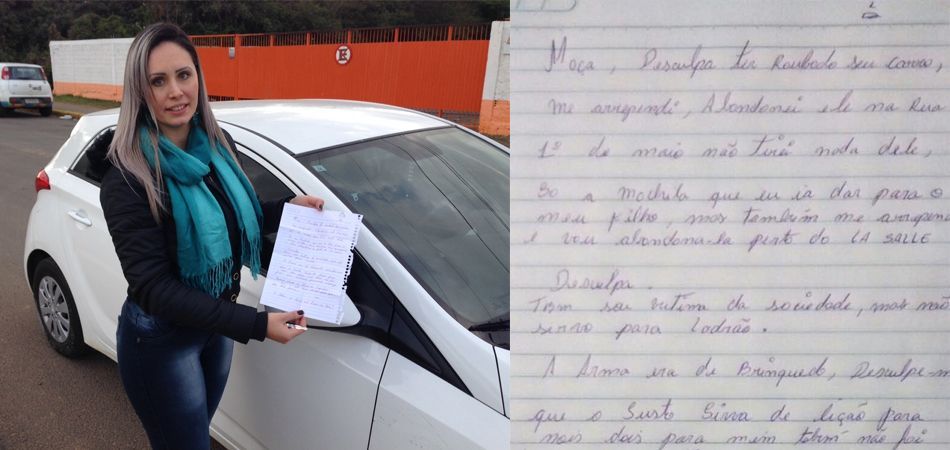 Moça, Desculpa ter Roubado seu carro,
me arrependi, Abandonei ele na Rua
1º de maio não tirei nada dele,
So a mochila que eu ia dar para o
meu filho, mas também me arrepen
e vou abandona-la perto do LA SALLE
Desculpa.
Tbm sou vitima da sociedade, mas não
sirvo para Ladrão.
A Arma era de Brinquedo, Desculpe-m
que o Susto Sirva de lição para
nois dois para mim tbm não foi